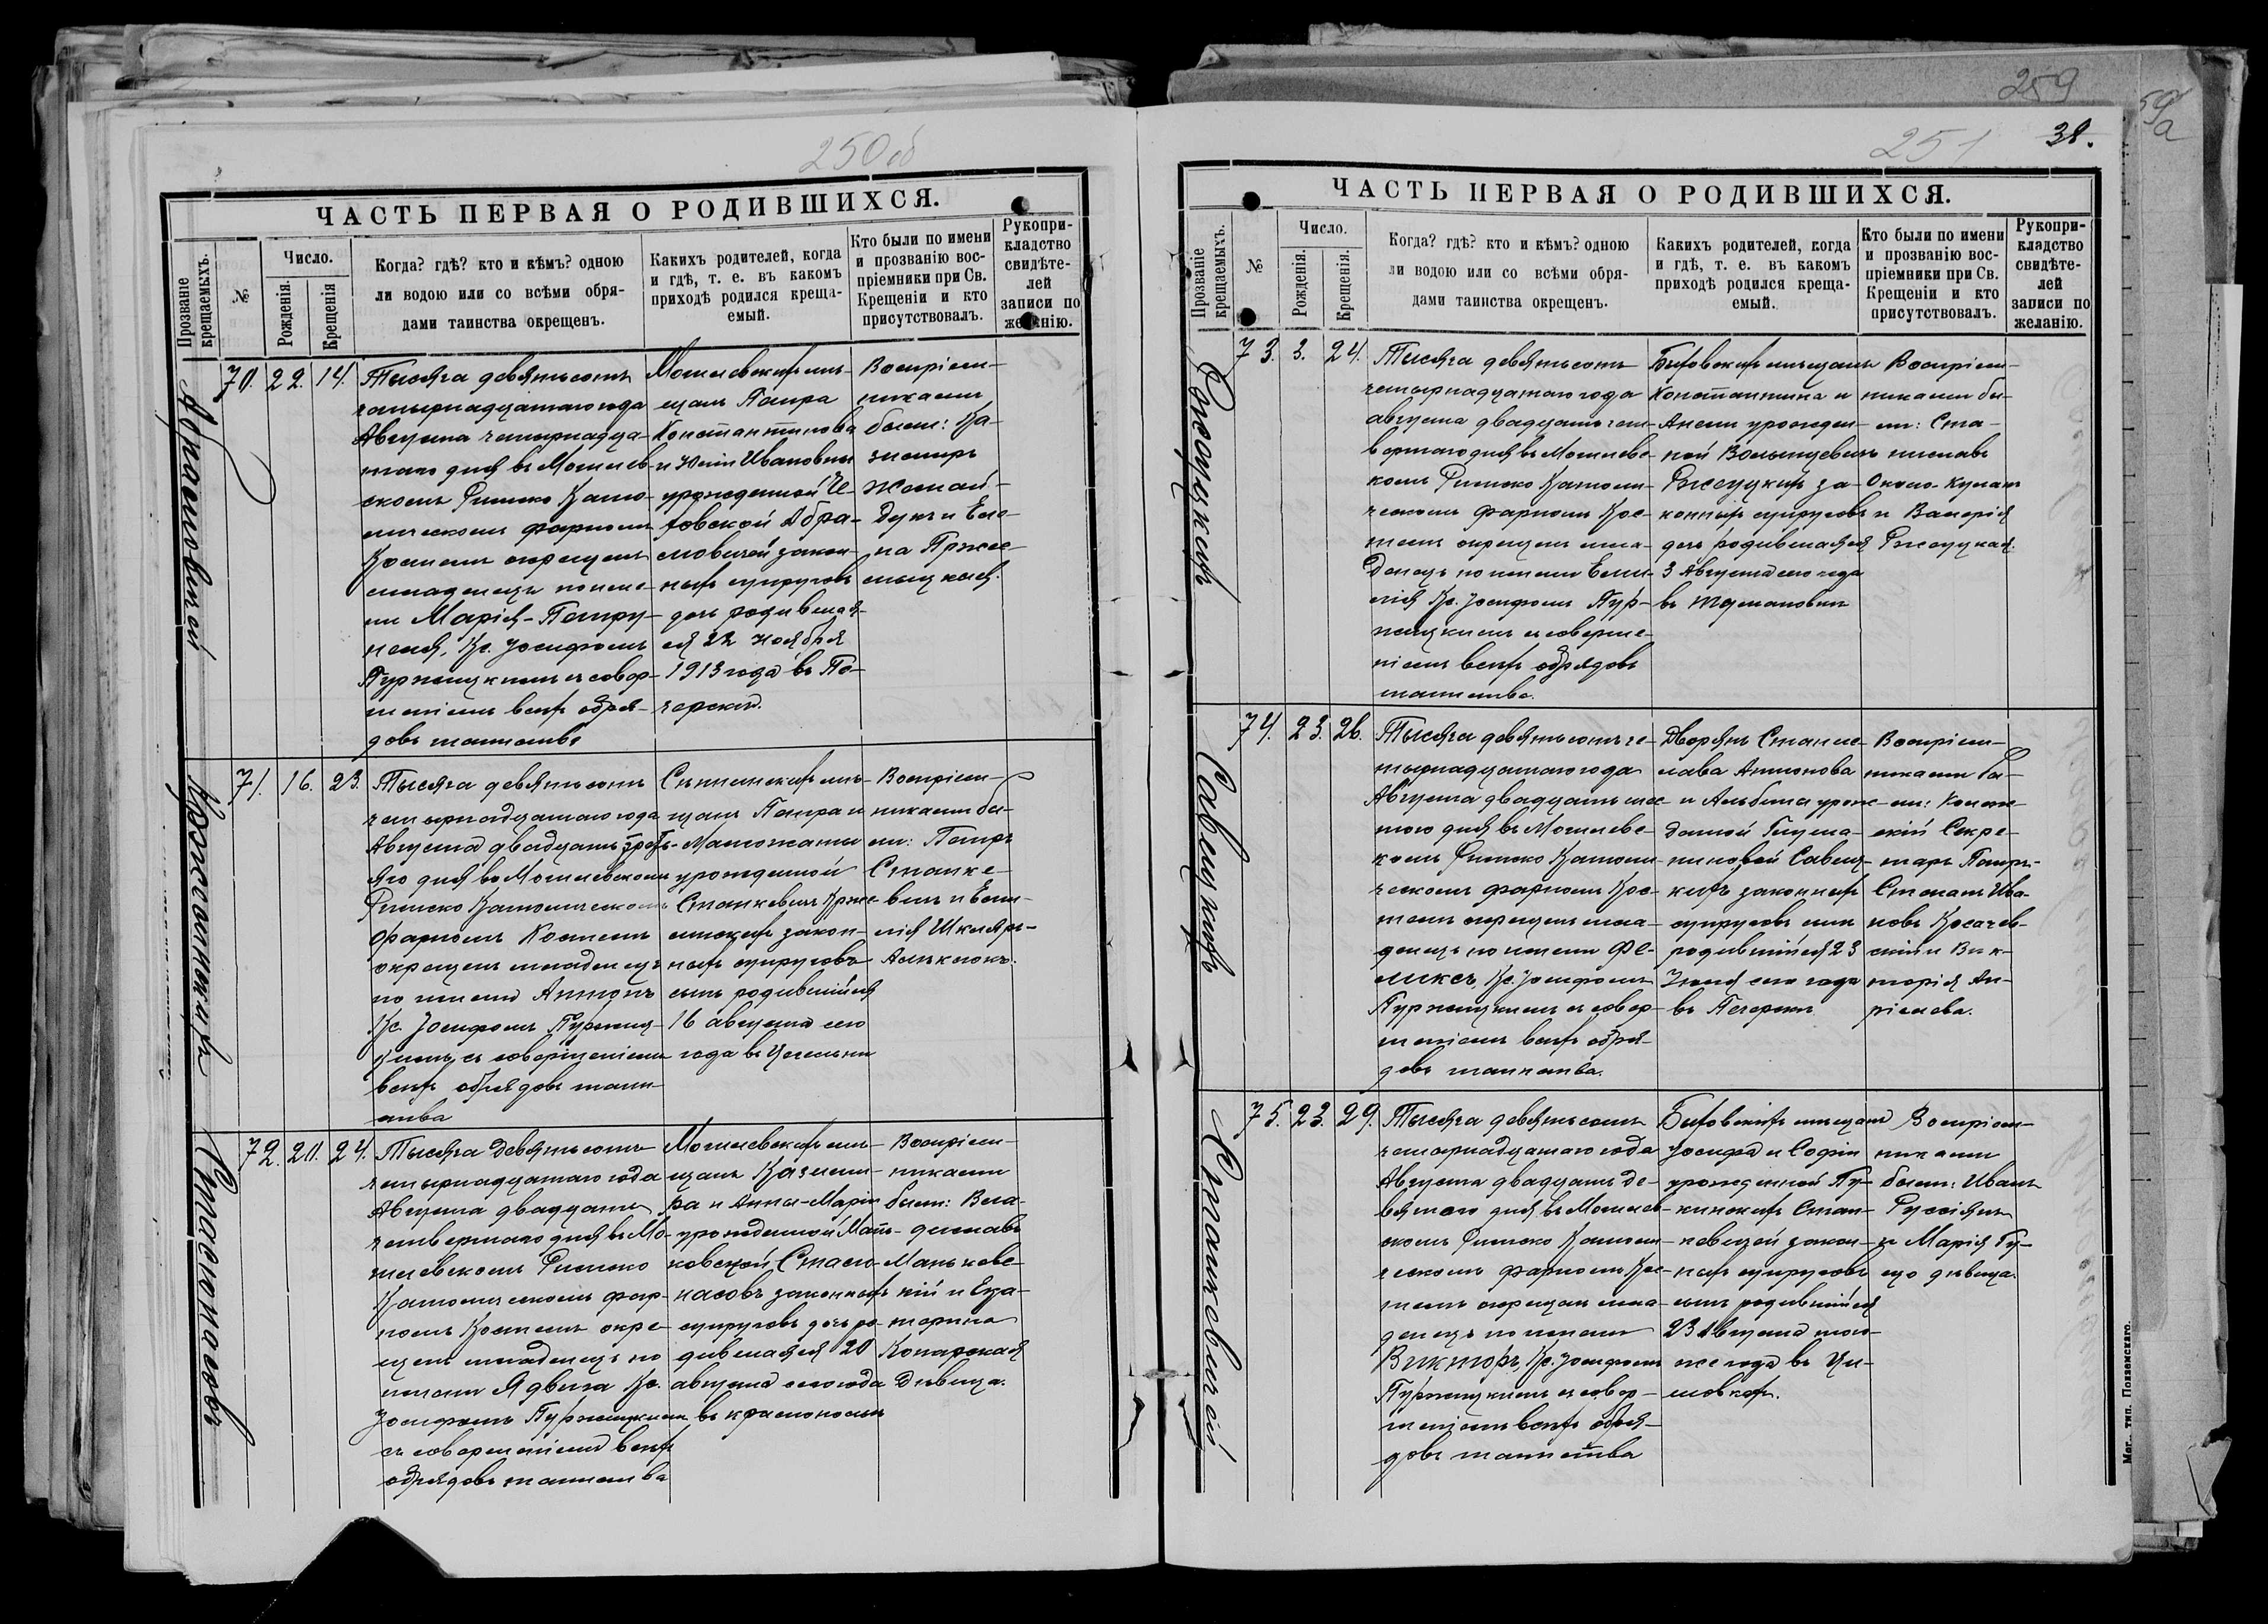 250об
ЧАСТЬ ПЕРВАЯ О РОДИВШИХСЯ.
Прозваніе крещаемыхъ.
№
Число.
Рожденія.
Крещенія
Когда? гдѣ? кто и кѣмъ? одною
ли водою или со всѣми обря-
дами таинства окрещенъ.
Какихъ родителей, когда
и гдѣ, т. е. въ какомъ
приходѣ родился креща-
емый.
Кто были по имени
и прозванію вос-
пріемники при Св.
Крещеніи и кто
присутствовалъ.
Рукопри-
кладство
свидѣте-
лей
записи по
желанію.
70. 22. 14.
Тысяча девятьсотъ
четырнадцатаго года
Августа четырнадца-
таго дня въ Могилев-
скомъ Римско Като-
лическомъ фарномъ
Костелѣ окрещенъ
младенецъ по име-
ни Марія-Петру-
неля, Кс. Іосифомъ
съ совер-
шеніемъ всѣхъ обря-
довъ таинства
Могилевскихъ мѣ-
щанъ Петра
Константинова
и Юліи Ивановны
урожденной
законн-
ныхъ супруговъ
дочь родившая-
ся 22 ноября
1913 года въ Пе-
черскѣ.
Воспріем-
никами
были: Ка-
зимиръ
и Еле-
на
71. 16. 23.
Тысяча девятьсотъ
четырнадцатаго года
Августа двадцать треть-
яго дня въ Могилевскомъ
Римско Католическомъ
Фарномъ Костелѣ
окрещенъ младенецъ
по имени Антонъ
Кс. Іосифомъ
съ совершеніемъ
всѣхъ обрядовъ таин-
ства
Сѣннинскихъ мѣ-
щанъ Петра и
урожденной
Станкевичъ
закон-
ныхъ супруговъ
сынъ родившійся
16 августа сего
года въ
Воспріем-
никами бы-
ли: Петръ
Станке-
вичъ и Еми-
лія
72. 20. 24.
Тысяча девятьсотъ
четырнадцатаго года
Августа двадцать
четвертаго дня въ Мо-
гилевскомъ Римско
Католическомъ фар-
номъ Костелѣ окре-
щенъ младенецъ по
имени Ядвига Кс.
Іосифомъ
съ совершеніемъ всѣхъ
обрядовъ таинства
Могилевскихъ мѣ-
щанъ Казими-
ра и Анны-Маріи
урожденной Мань-
ковской
законныхъ
супруговъ дочь ро-
дившаяся 20
августа сего года
въ
Воспріем-
никами
были: Вла-
диславъ
Маньковс-
кій и Ека-
терина
Комарская
дѣвица.
259
59/а
251
38.
ЧАСТЬ ПЕРВАЯ О РОДИВШИХСЯ.
Прозваніе крещаемыхъ.
№
Число.
Рожденія.
Крещенія.
Когда? гдѣ? кто и кѣмъ? одною
ли водою или со всѣми обря-
дами таинства окрещенъ.
Какихъ родителей, когда
и гдѣ, т. е. въ какомъ
приходѣ родился креща-
емый.
Кто были по имени
и прозванію вос-
пріемники при Св.
Крещеніи и кто
присутствовалъ.
Рукопри-
кладство
свидѣте-
лей
записи по
желанію.
73. 3. 24.
Тысяча девятьсотъ
четырнадцатаго года
августа двадцать чет-
вертаго дня въ Могилевс-
комъ Римско Католи-
ческомъ фарномъ Кос-
телѣ окрещенъ мла-
денецъ по имени Еми-
лія Кс. Іосифомъ
съ соверше-
ніемъ всѣхъ обрядовъ
таинства.
Быховскихъ мѣщанъ
Константина и
урожден-
ной
Ржеуцкихъ за-
конныхъ супруговъ
дочь родившаяся
3 Августа сего года
въ
Воспріем-
никами бы-
ли: Ста-
ниславъ
и Валерія
Ржеуцкая.
Савицкихъ
74. 23. 26.
Тысяча девятьсотъ че-
тырнадцатаго года
Августа двадцать шес-
того дня въ Могилевс-
комъ Римско Католи-
ческомъ фарномъ Кос-
телѣ окрещенъ мла-
денецъ по имени Фе-
ликсъ, Кс. Іосифомъ
съ совер-
шеніемъ всѣхъ обря-
довъ таинства.
Дворянъ Станис-
лава Антонова
и Альбины урож-
денной
Савиц-
кихъ законныхъ
супруговъ сынъ
родившійся 23
Іюля сего года
въ Печерскѣ
Воспріем-
никами бы-
ли:
Секре-
тарь Петръ-
Степанъ Ива-
новъ
и Вик-
торія
Станкевичъ
75. 23. 29.
Тысяча девятьсотъ
четырнадцатаго года
Августа двадцать де-
вятаго дня въ Могилев-
скомъ Римско Католи-
ческомъ фарномъ Кос-
телѣ окрещенъ мла-
денецъ по имени
Викторъ, Кс. Іосифомъ
съ совер-
шеніемъ всѣхъ обря-
довъ таинства
Быховскихъ мѣщанъ
Іосифа и Софіи
урожденной
закон-
ныхъ супруговъ
сынъ родившійся
23 Августа того-
же года въ
Воспріем-
никами
были: Иванъ
и Марія
дѣвица.
Мог., тип. Подземскаго.